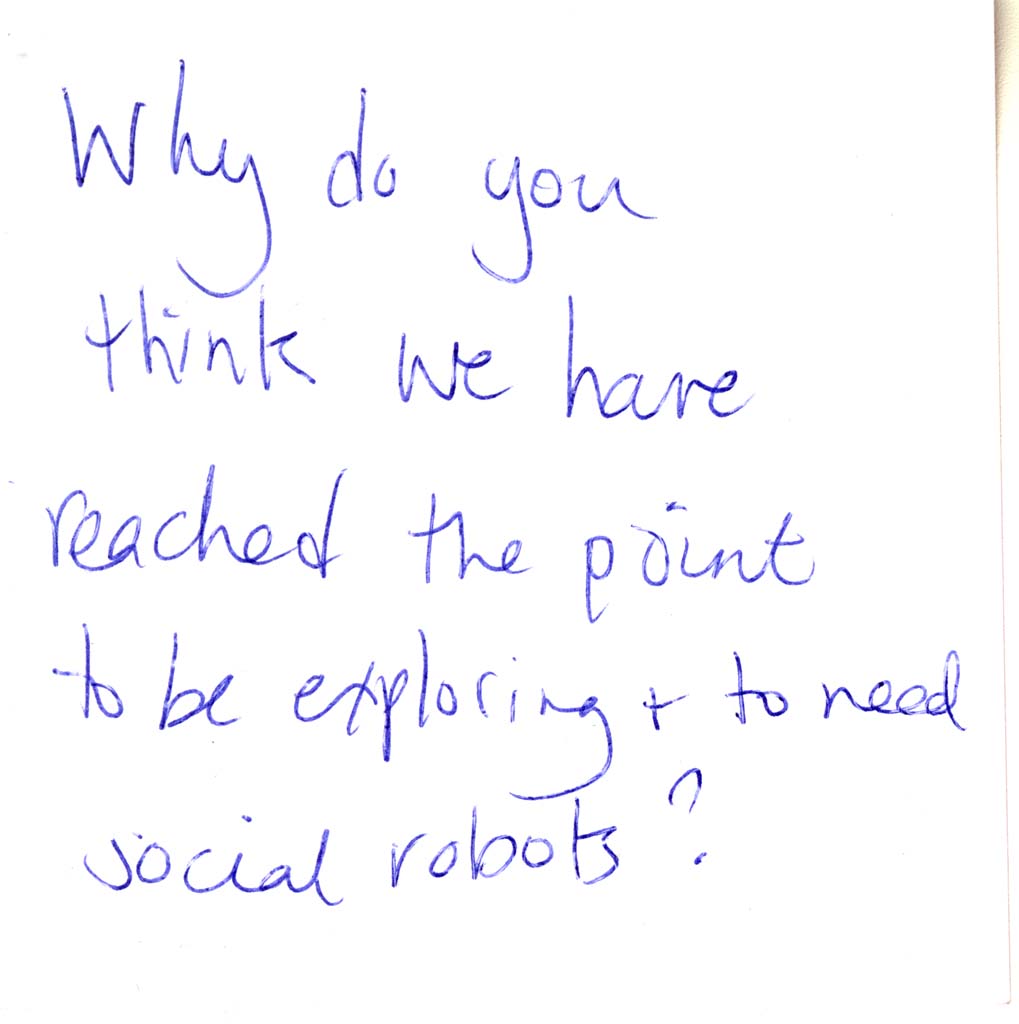 Why do you
think we have
reached the point
to be exploring + to need
social robots?